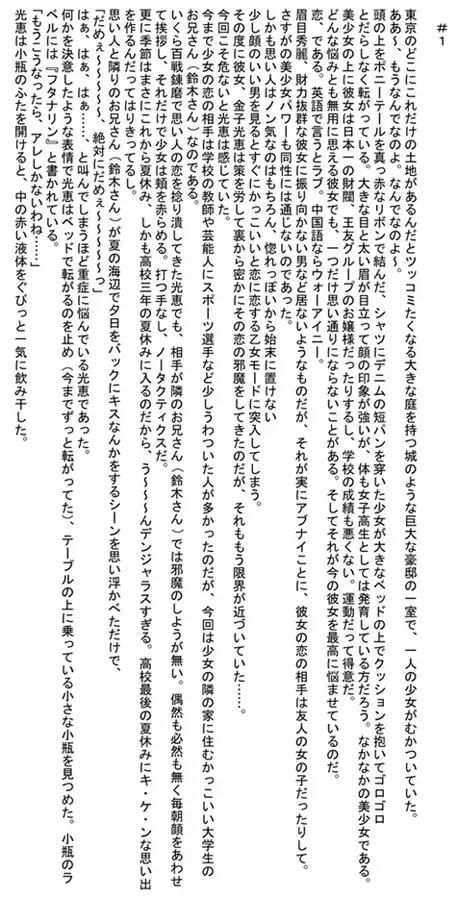 #1
東京のどこにこれだけの土地があるんだとツッコミたくなる大きな庭を持つ城のような巨大な豪邸の一室で、一人の少女がむかついていた。
「ああ～、もうなんでなのよ。なんでなのよ～」
頭の上をポニーテールを真っ赤なリボンで結んだ、シャツにデニムの短パンを穿いた少女が大きなベッドの上でクッションを抱いてゴロゴロ
とだらしなく転がっている。大きな目と太い眉が目立って顔の印象が強いが、体も女子高生としては発育している方だろう。なかなかの美少女である。
美少女の上に彼女は日本一の財閥、王友グループのお嬢様だったりするし、学校の成績も悪くない。運動だって得意だ。
どんな悩みとも無用に思える彼女でも、一つだけ思い通りにならないことがある。そしてそれが今の彼女を最高に悩ませているのだ。
恋、である。英語で言うとラブ。中国語ならウォーアイニー。
眉目秀麗、財力抜群な彼女に振り向かない男など居ないようなものだが、それが実にアブナイことに、彼女の恋の相手は友人の女の子だったりして。
さすがの美少女パワーも同性には通じないのであった。
しかも思い人はノン気なのはもちろん、惚れっぽいから始末に置けない
少し顔のいい男を見るとすぐにかっこいいと恋に恋する乙女モードに突入してしまう。
その度に彼女、金子光恵は策を労して裏から密かにその恋の邪魔をしてきたのだが、それももう限界が近づいていた……。
今回こそ危ないと光恵は感じていた。
今まで少女の恋の相手は学校の教師や芸能人にスポーツ選手など少しうわついた人が多かったのだが、今回は少女の隣の家に住むかっこいい大学生の
お兄さん（鈴木さん）なのである。
いくら百戦錬磨で思い人の恋を捻り潰してきた光恵でも、相手が隣のお兄さん（鈴木さん）では邪魔のしようが無い。偶然も必然も無く毎朝顔をあわせ
て挨拶し、それだけで少女は頬を赤らめる。打つ手なし、ノータクティクスだ。
更に季節はまさにこれから夏休み、しかも高校三年の夏休みに入るのだから、う～～～んデンジャラスすぎる。高校最後の夏休みにキ・ケ・ンな思い出
を作るんだってはりきってるし。
思い人と隣りのお兄さん（鈴木さん）が夏の海辺で夕日をバックにキスなんかをするシーンを思い浮かべただけで、
「だめぇ～～～～～、絶対にだめぇ～～～～～っ」
はぁ、はぁ、はぁ……、と叫んでしまうほど重症に悩んでいる光恵であった。
何かを決意したような表情で光恵はベッドで転がるのを止め（今までずっと転がってた）、テーブルの上に乗っている小さな小瓶を見つめた。小瓶のラ
ベルには『フタナリン』と書かれている。
「もうこうなったら、アレしかないわね……」
光恵は小瓶のふたを開けると、中の赤い液体をぐびっと一気に飲み干した。